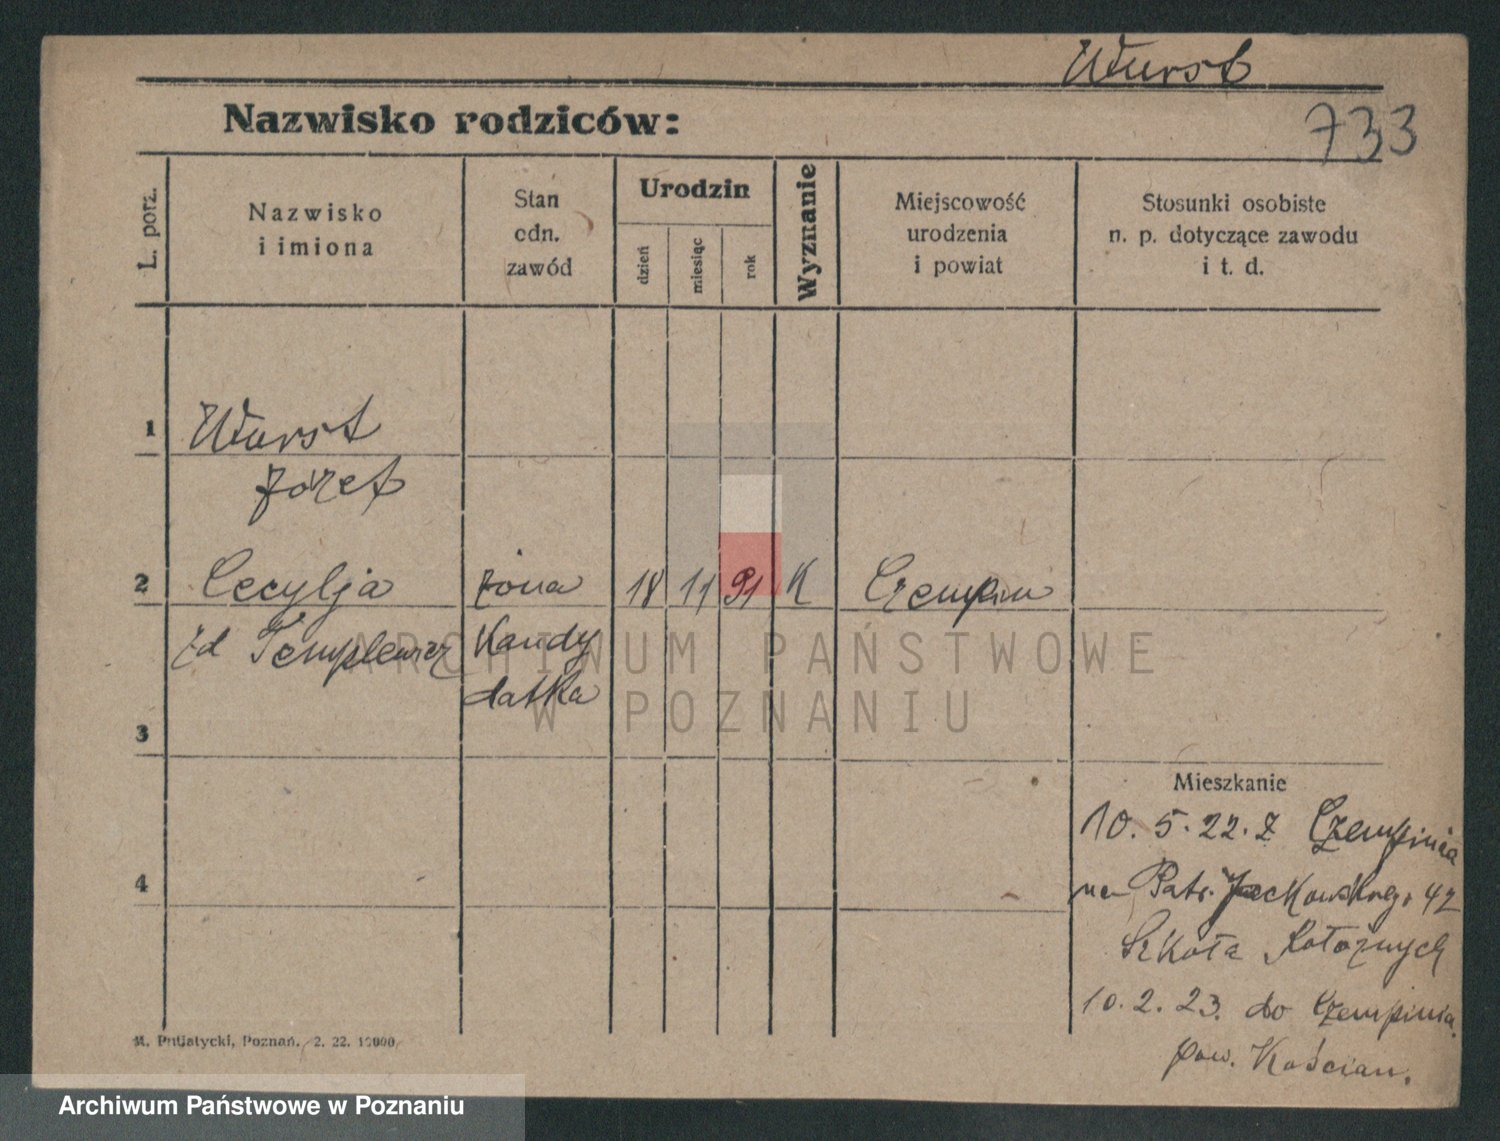 Wurst
733
Nazwisko rodziców:
L. porz.
Nazwisko
i imiona
Stan
cdn.
zawód
Urodzin
dzień
miesiąc
rok
Wyznanie
Miejscowość
urodzenia
i powiat
Stosunki osobiste
n. p. dotyczące zawodu
i t. d.
1 Wurst
Józef
2 Cecylja żona 18 11 91 K Czempin
zd Templewicz Kandy
datka
3
Mieszkanie
10. 5. 22. z Czempinia
na Patr. Jackowskiego 42
4
Szkoła Położnych
10. 2. 23. do Czempinia
pow. Kościan.
M. Putiatycki, Poznań. 2. 22. 10000
ARCHIWUM PAŃSTWOWE
W POZNANIU
Archiwum Państwowe w Poznaniu